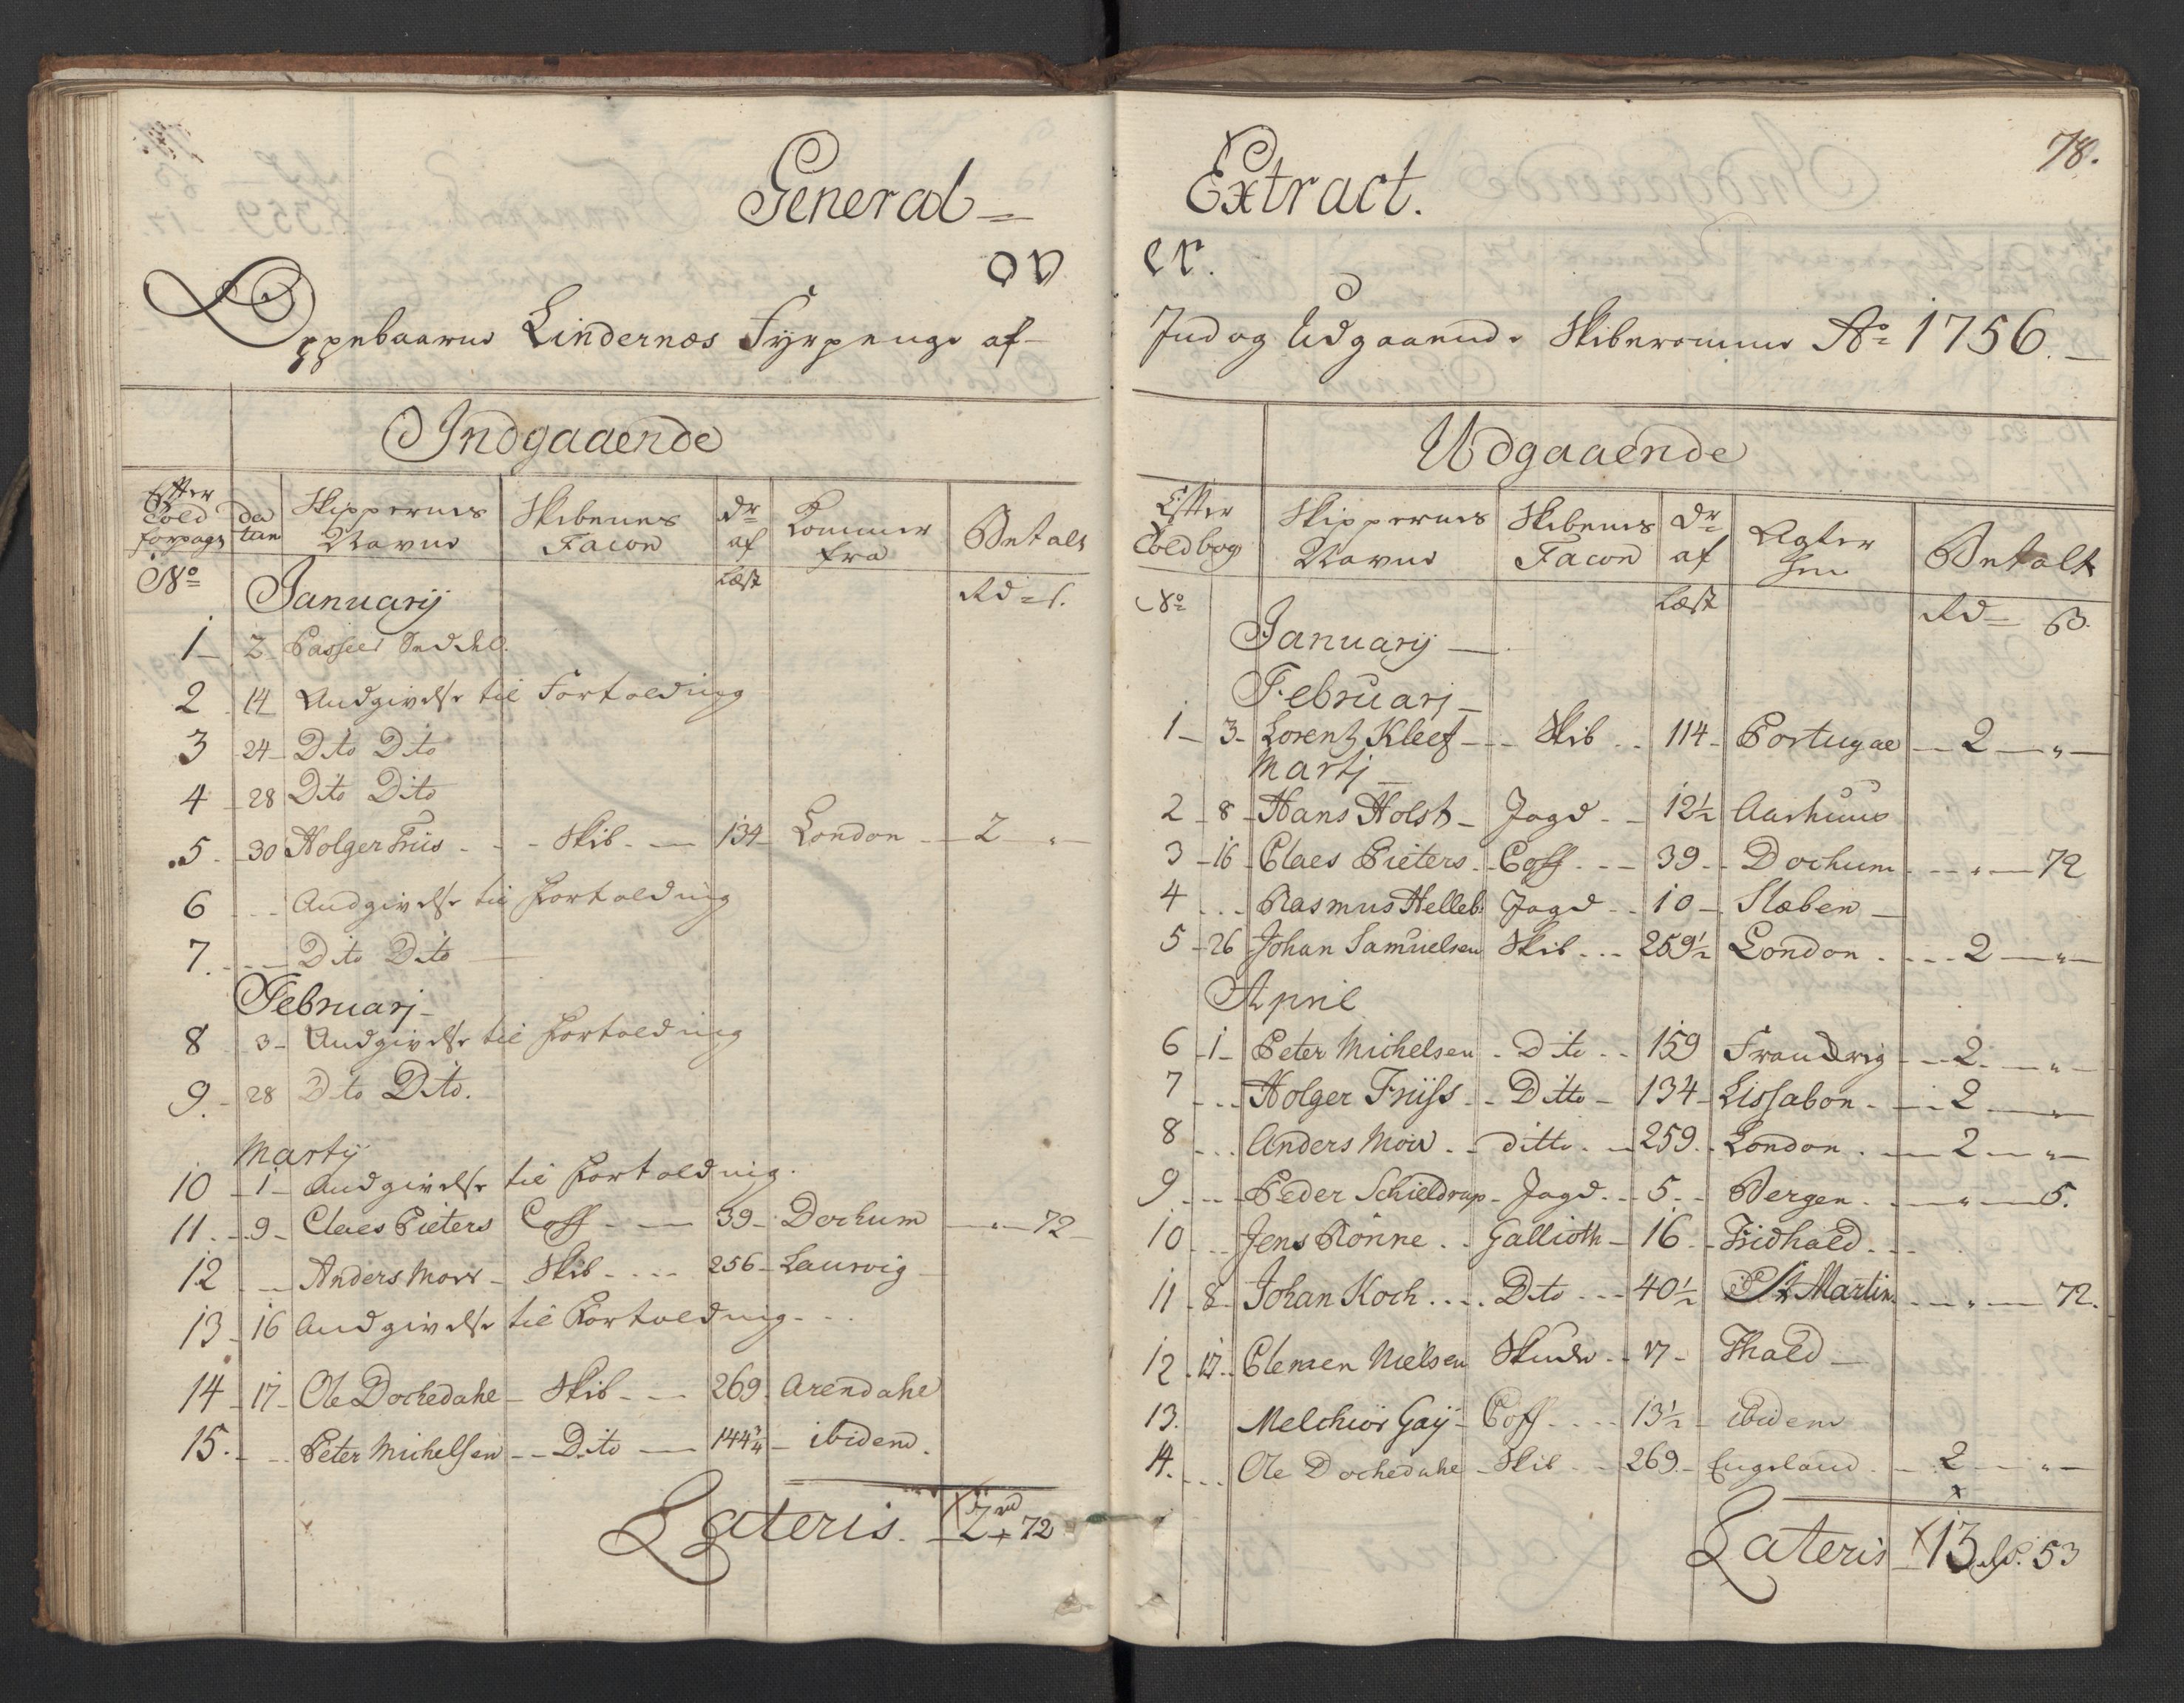 General=
ov
Oppebaarne Lindernæs Fyrpenge af
Indgaaende
Efter Told forpagt. No | da tum | Skippernes Navne | Skibenes Facon | Dr. af Læst | Kommer fra | Betalt Rd = s.
Januarij
1 2 Passeer Seddel.
2 14 Andgivelse til Fortolding
3 24 Dito Dito
4 28 Dito Dito
5 30 Holger Friis Skib 134 London 2 "
6 Andgivelse til Fortolding
7. Dito Dito
Februarj
8 3 Andgivelse til Fortolding
9. 28 Dito Dito.
Martij
10 1 Andgivelse til Fortolding.
11. 9 Claes Pieters Coff 39 Dochum " 72
12 Anders Morr Skib 256 Laurvig
13 16 Andgivelse til Fortolding
14 17 Ole Dochedahl Skib 269 Arendahl
15. Peter Michelsen Dito 144 3/4 ibidem.
Lateris. 2 rd 72
78.
Extract.
er.
Ind og Udgaaende Skiberomme Ao 1756.
Udgaaende
Efter Toldbog No | Skippernes Navne | Skibenes Facon | Dr. af Læst | Agter hen | Betalt Rd = ß.
Januarij
Februarj
1 3 Lorentz Kleef Skib 114 Portugal 2 "
Martj
2 8 Hans Holst Jagd 12 1/2 Aarhuus
3 16 Claes Pieters Coff 39 Dochum " 72
4 Rasmus Helleb: Jagd 10 Slæben
5 26 Johan Samuelsen Skib 259 1/2 London 2 "
April
6 1 Peter Michelsen Dito 159 Frandrig 2 "
7 Holger Friiss Ditto 134 Lissabon 2 "
8 Anders Mow ditto 259 London 2 "
9 Peder Schieldrup Jagd 5 Bergen " 5.
10 Jens Rönne Gallioth 16 Fridhald
11 8 Johan Koch Dito 40 1/2 St Martin " 72.
12 17 Clemen Nielsen Skude 17 Fhald
13. Melchior Gaÿ Coff 13 1/2 ibidem
14. Ole Dochedahl Skib 269 Engeland 2 "
Lateris 13 rd. 53